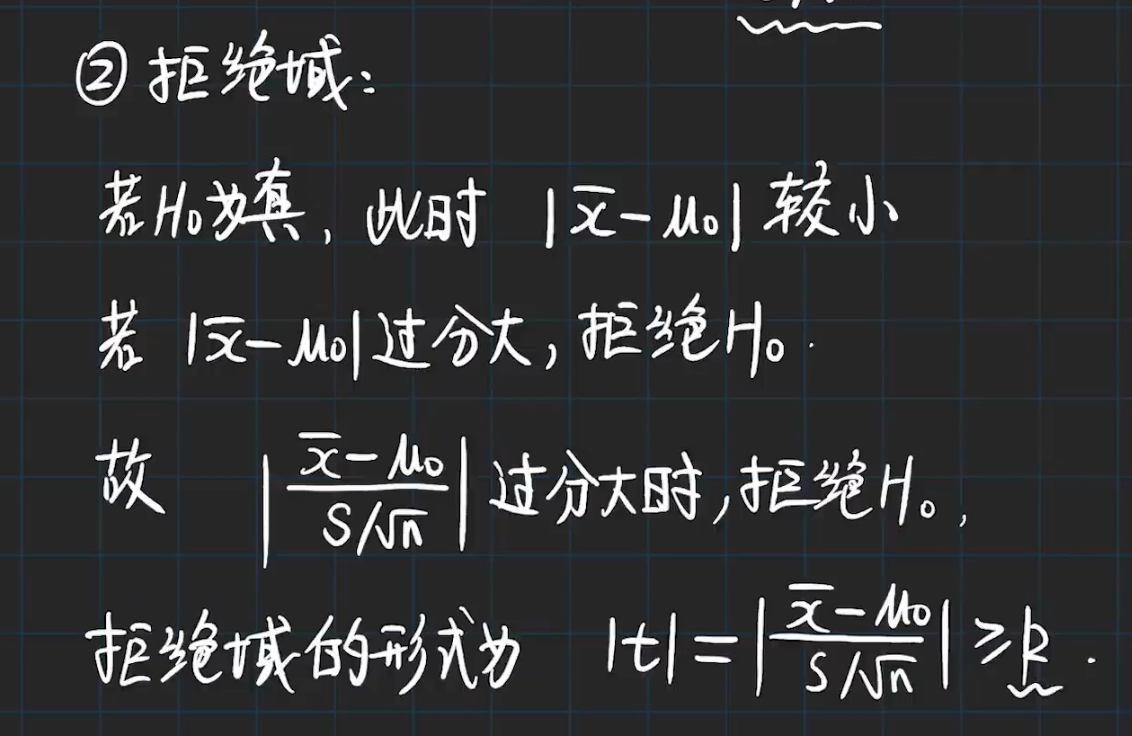 ② 拒绝域:
若H₀为真, 此时 |x̄-μ₀| 较小
若 |x̄-μ₀| 过分大, 拒绝H₀.
故 |(x̄-μ₀)/(S/√n)| 过分大时, 拒绝H₀,
拒绝域的形式为 |t|=|(x̄-μ₀)/(S/√n)|≥k.